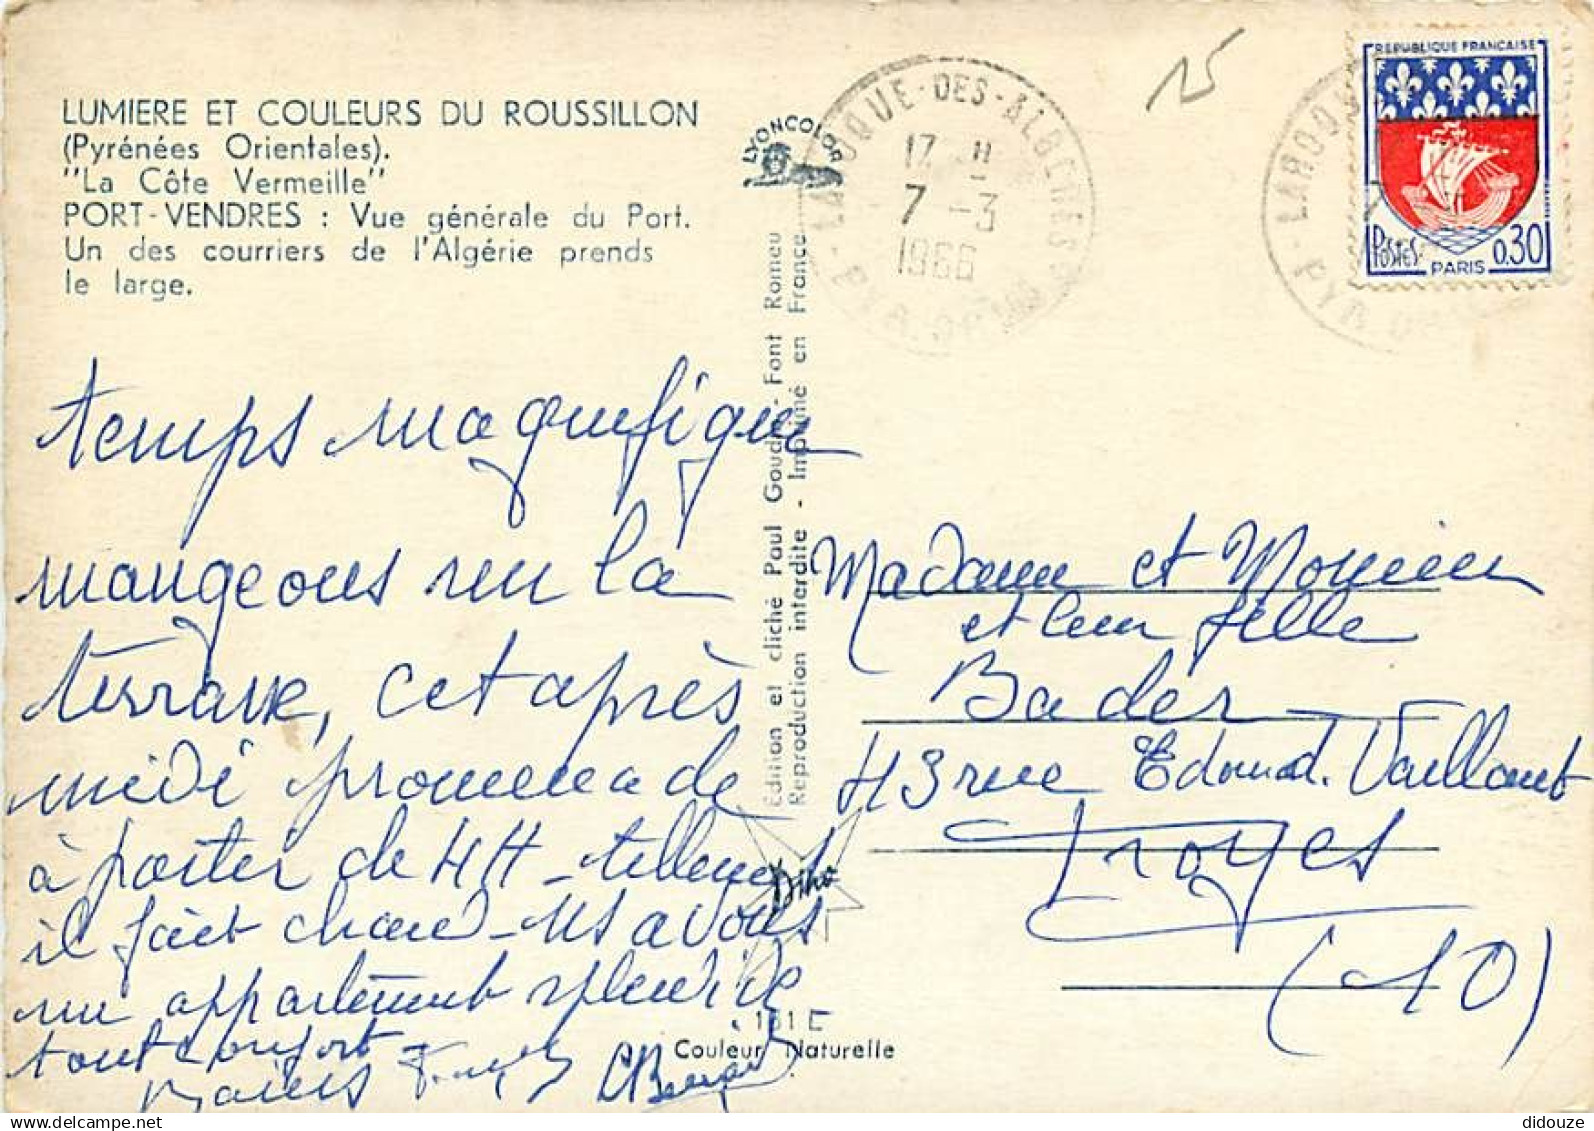 LUMIERE ET COULEURS DU ROUSSILLON
(Pyrénées Orientales).
"La Côte Vermeille"
PORT-VENDRES : Vue générale du Port.
Un des courriers de l'Algérie prends
le large.
LYONCOLOR
LAROQUE-DES-ALBERES
17 H
7 - 3
1966
25
REPUBLIQUE FRANÇAISE
POSTES
PARIS
0,30
temps magnifique
mangeons sur la
terrasse, cet après
midi promenade
à partir de 4H - tellement
il fait chaud - ns avons
un appartement splendide
tout confort -
Édition et cliché Paul Goudin - Font Romeu
Reproduction interdite - Imprimé en France
Diho
161 E
Couleur Naturelle
Madame et Monsieur
et leur fille
Bader
43 rue Edouard Vaillant
Troyes
(10)
didouze
delcampe.net